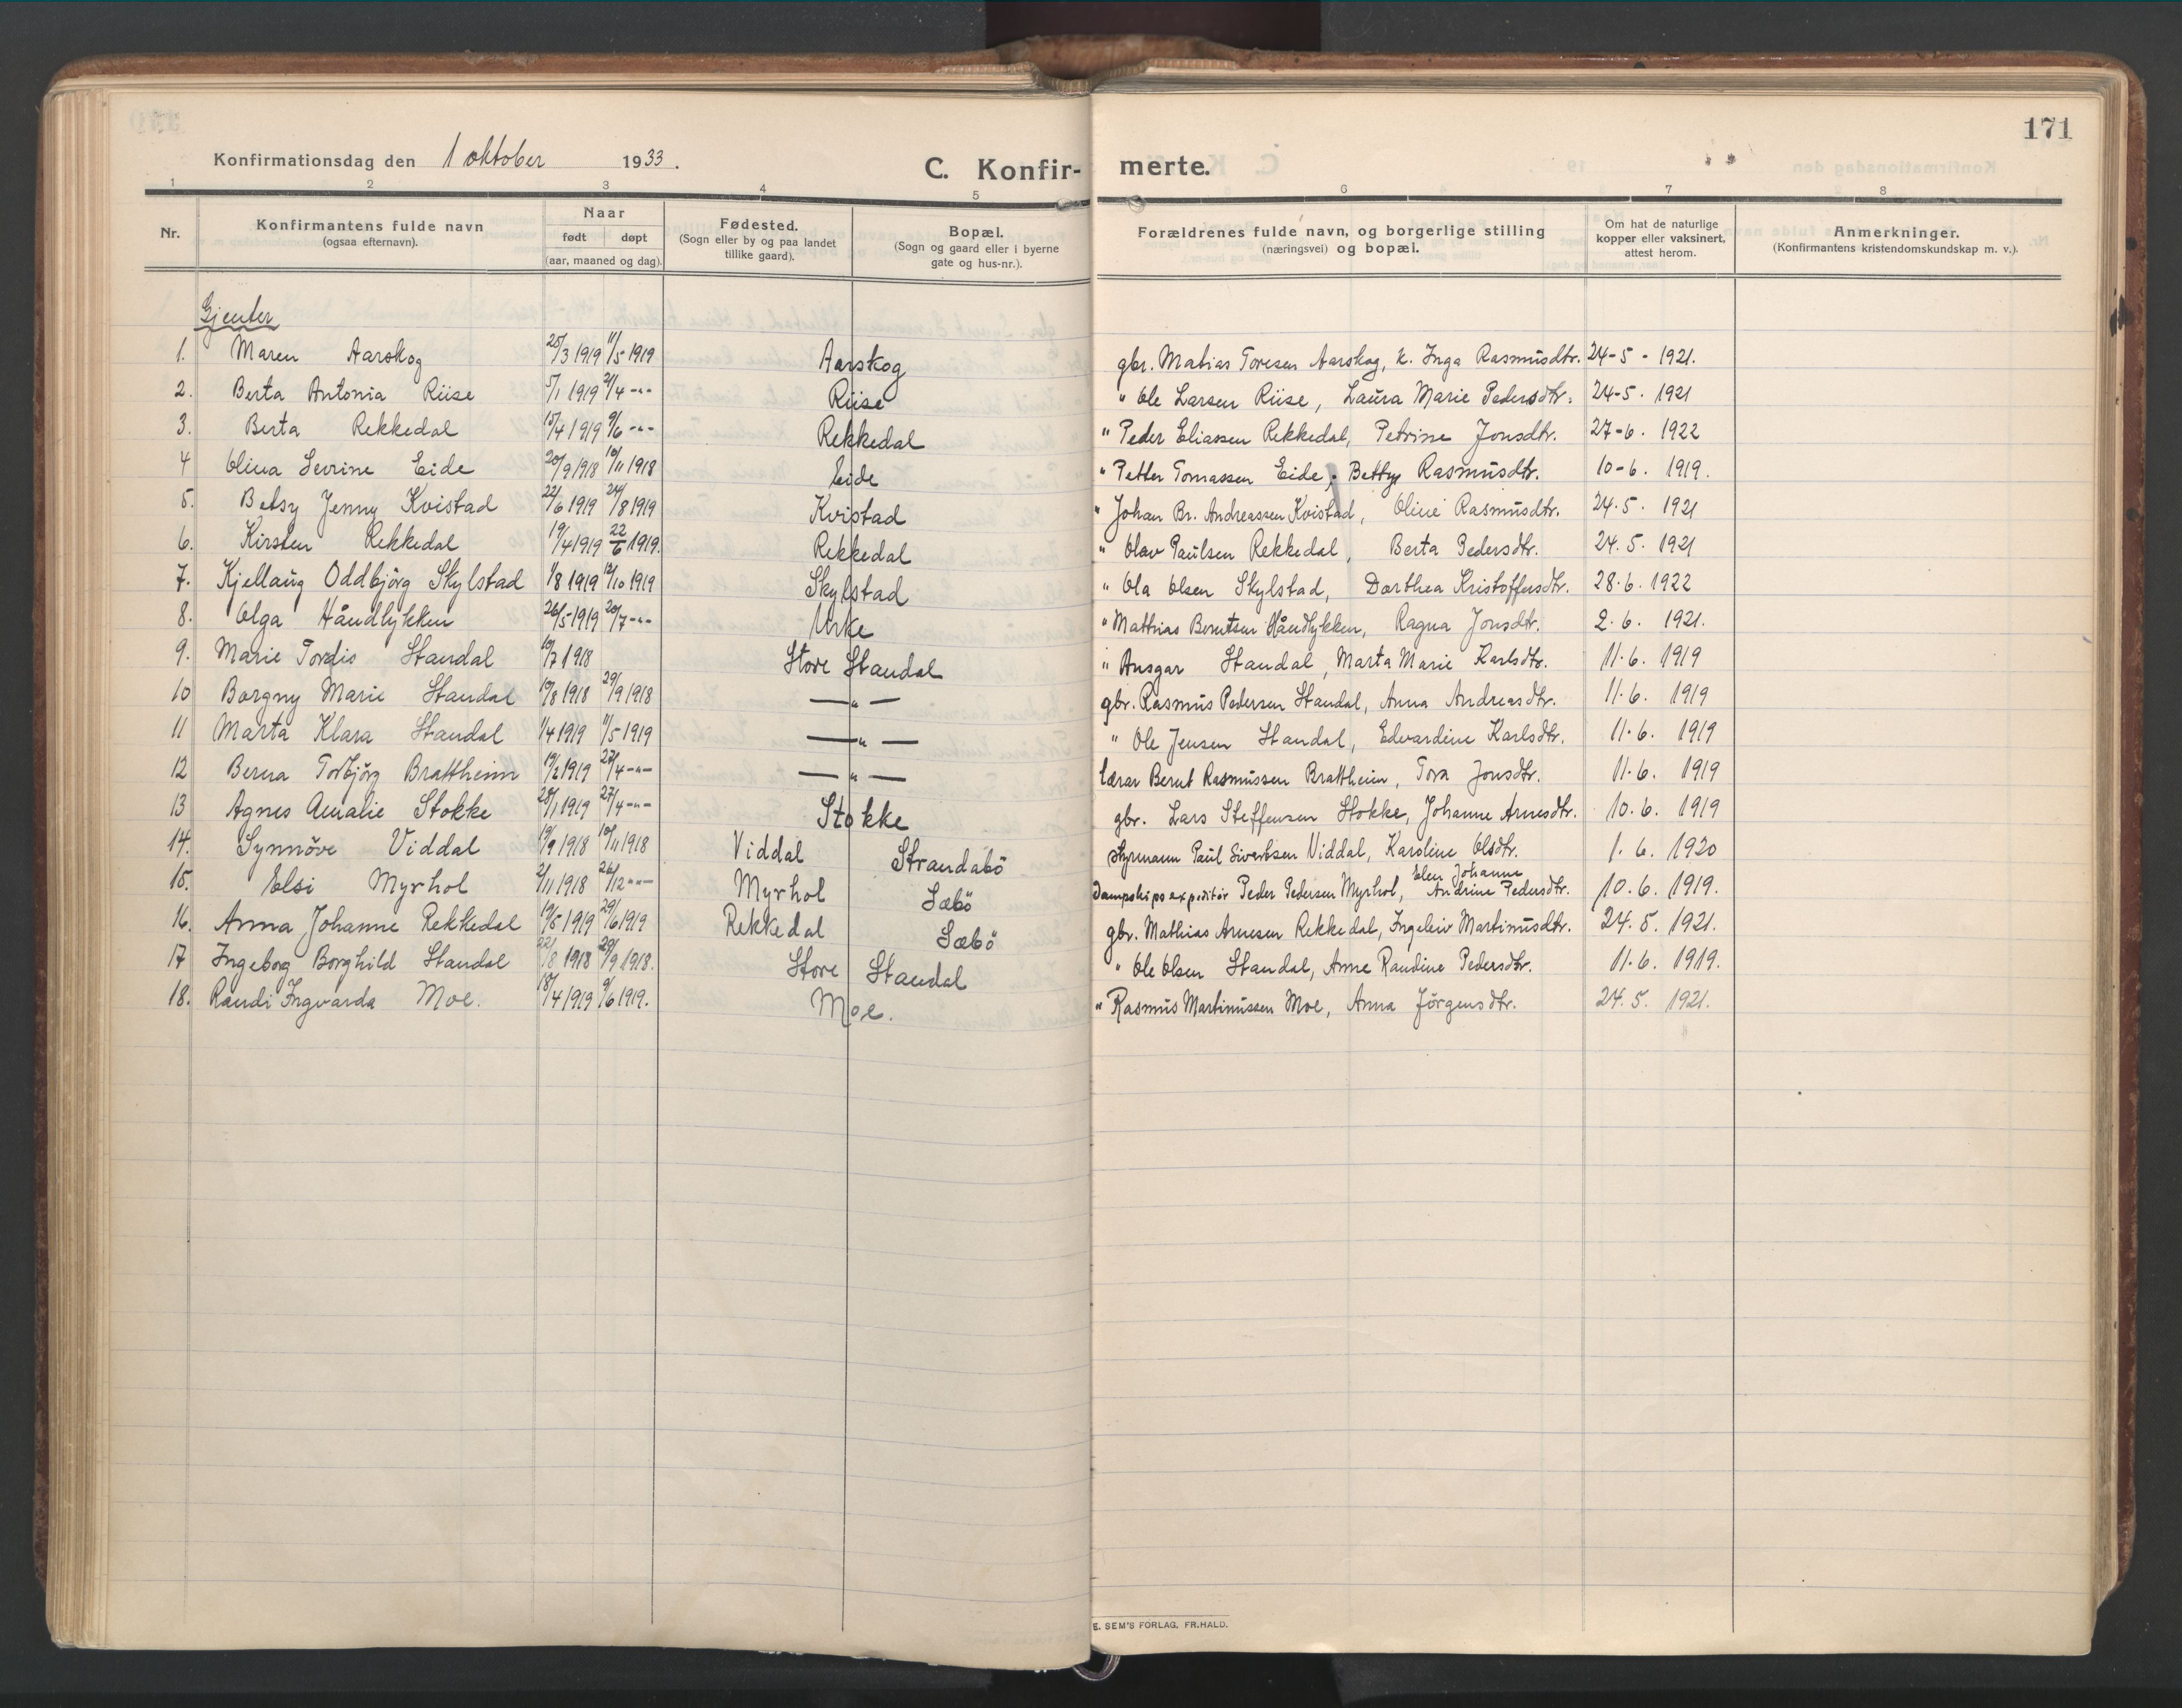 171
Konfirmationsdag den 1 oktober 1933.
C. Konfir- merte.
1 2 3 4 5 6 7 8
Nr. | Konfirmantens fulde navn (ogsaa efternavn). | Naar født døpt (aar, maaned og dag). | Fødested. (Sogn eller by og paa landet tillike gaard). | Bopæl. (Sogn og gaard eller i byerne gate og hus-nr.). | Forældrenes fulde navn, og borgerlige stilling (næringsvei) og bopæl. | Om hat de naturlige kopper eller vaksinert, attest herom. | Anmerkninger. (Konfirmantens kristendomskundskap m. v.).
Gjenter
1. Maren Aarskog 25/3 1919 11/5 1919 Aarskog gbr. Matias Toresen Aarskog, k. Inga Rasmusdtr. 24-5-1921.
2. Berta Antonia Riise 5/1 1919 21/4 -"- Riise " Ole Larsen Riise, Laura Marie Pedersdtr. 24-5. 1921
3. Berta Rekkedal 15/4 1919 9/6 -"- Rekkedal " Peder Eliassen Rekkedal, Petrine Jonsdtr. 27-6. 1922
4 Olina Sevrine Eide 20/9 1918 10/11 1918 Eide " Petter Tomassen Eide, Bettys Rasmusdtr. 10-6. 1919.
5. Betsy Jenny Kvistad 22/6 1919 24/8 1919 Kvistad " Johan Br. Andreassen Kvistad, Oline Rasmusdtr. 24.5. 1921
6. Kirsten Rekkedal 19/4 1919 22/6 1919. Rekkedal " Olav Paulsen Rekkedal, Berta Pedersdtr. 24.5. 1921
7. Kjellaug Oddbjörg Skylstad 1/8 1919 12/10 1919 Skylstad " Ola Olsen Skylstad, Dorthea Kristoffersdtr. 28.6. 1922
8. Olga Håndlykken 26/5 1919 20/7 -"- Urke " Mathias Berntsen Håndlykken, Ragna Jonsdtr. 2.6. 1921.
9. Marie Tordis Standal 19/7 1918 Store Standal " Ansgar Standal, Marta Marie Karlsdtr. 11.6. 1919
10 Borgny Marie Standal 19/8 1918 29/9 1918 — " — gbr. Rasmus Pedersen Standal, Anna Andreasdtr. 11.6. 1919
11 Marta Klara Standal 1/4 1919 11/5 1919 — " — " Ole Jensen Standal, Edvardine Karlsdtr. 11.6. 1919
12 Berna Torbjörg Brattheim 19/2 1919 27/4 -"- — " — lærar Bernt Rasmussen Brattheim, Tora Jonsdtr. 11.6. 1919
13 Agnes Amalie Stokke 28/1 1919 27/4 -"- Stokke gbr. Lars Steffensen Stokke, Johanne Arnesdtr. 10.6. 1919
14. Synnöve Viddal 19/9 1918 10/11 1918 Viddal Strandabö styrmann Paul Sivertsen Viddal, Karoline Olsdtr. 1.6. 1920
15. Elsi Myrhol 2/11 1918 26/12 -"- Myrhol Sæbö Dampskipsexpeditör Peder Pedersen Myrhol, Elen Johanne Andrine Pedersdtr. 10.6. 1919.
16. Anna Johanne Rekkedal 19/5 1919 29/6 1919 Rekkedal Sæbö gbr. Mathias Arnesen Rekkedal, Ingeleiv Martinusdtr. 24.5. 1921.
17 Ingeborg Borghild Standal 22/8 1918 29/9 1918. Store Standal " Ole Olsen Standal, Anne Randine Pedersdtr. 11.6. 1919.
18. Randi Ingvarda Moe. 18/4 1919 9/6 1919. Moe. " Rasmus Martinussen Moe, Anna Jörgensdtr. 24.5. 1921.
E. SEM'S FORLAG, FR.HALD.